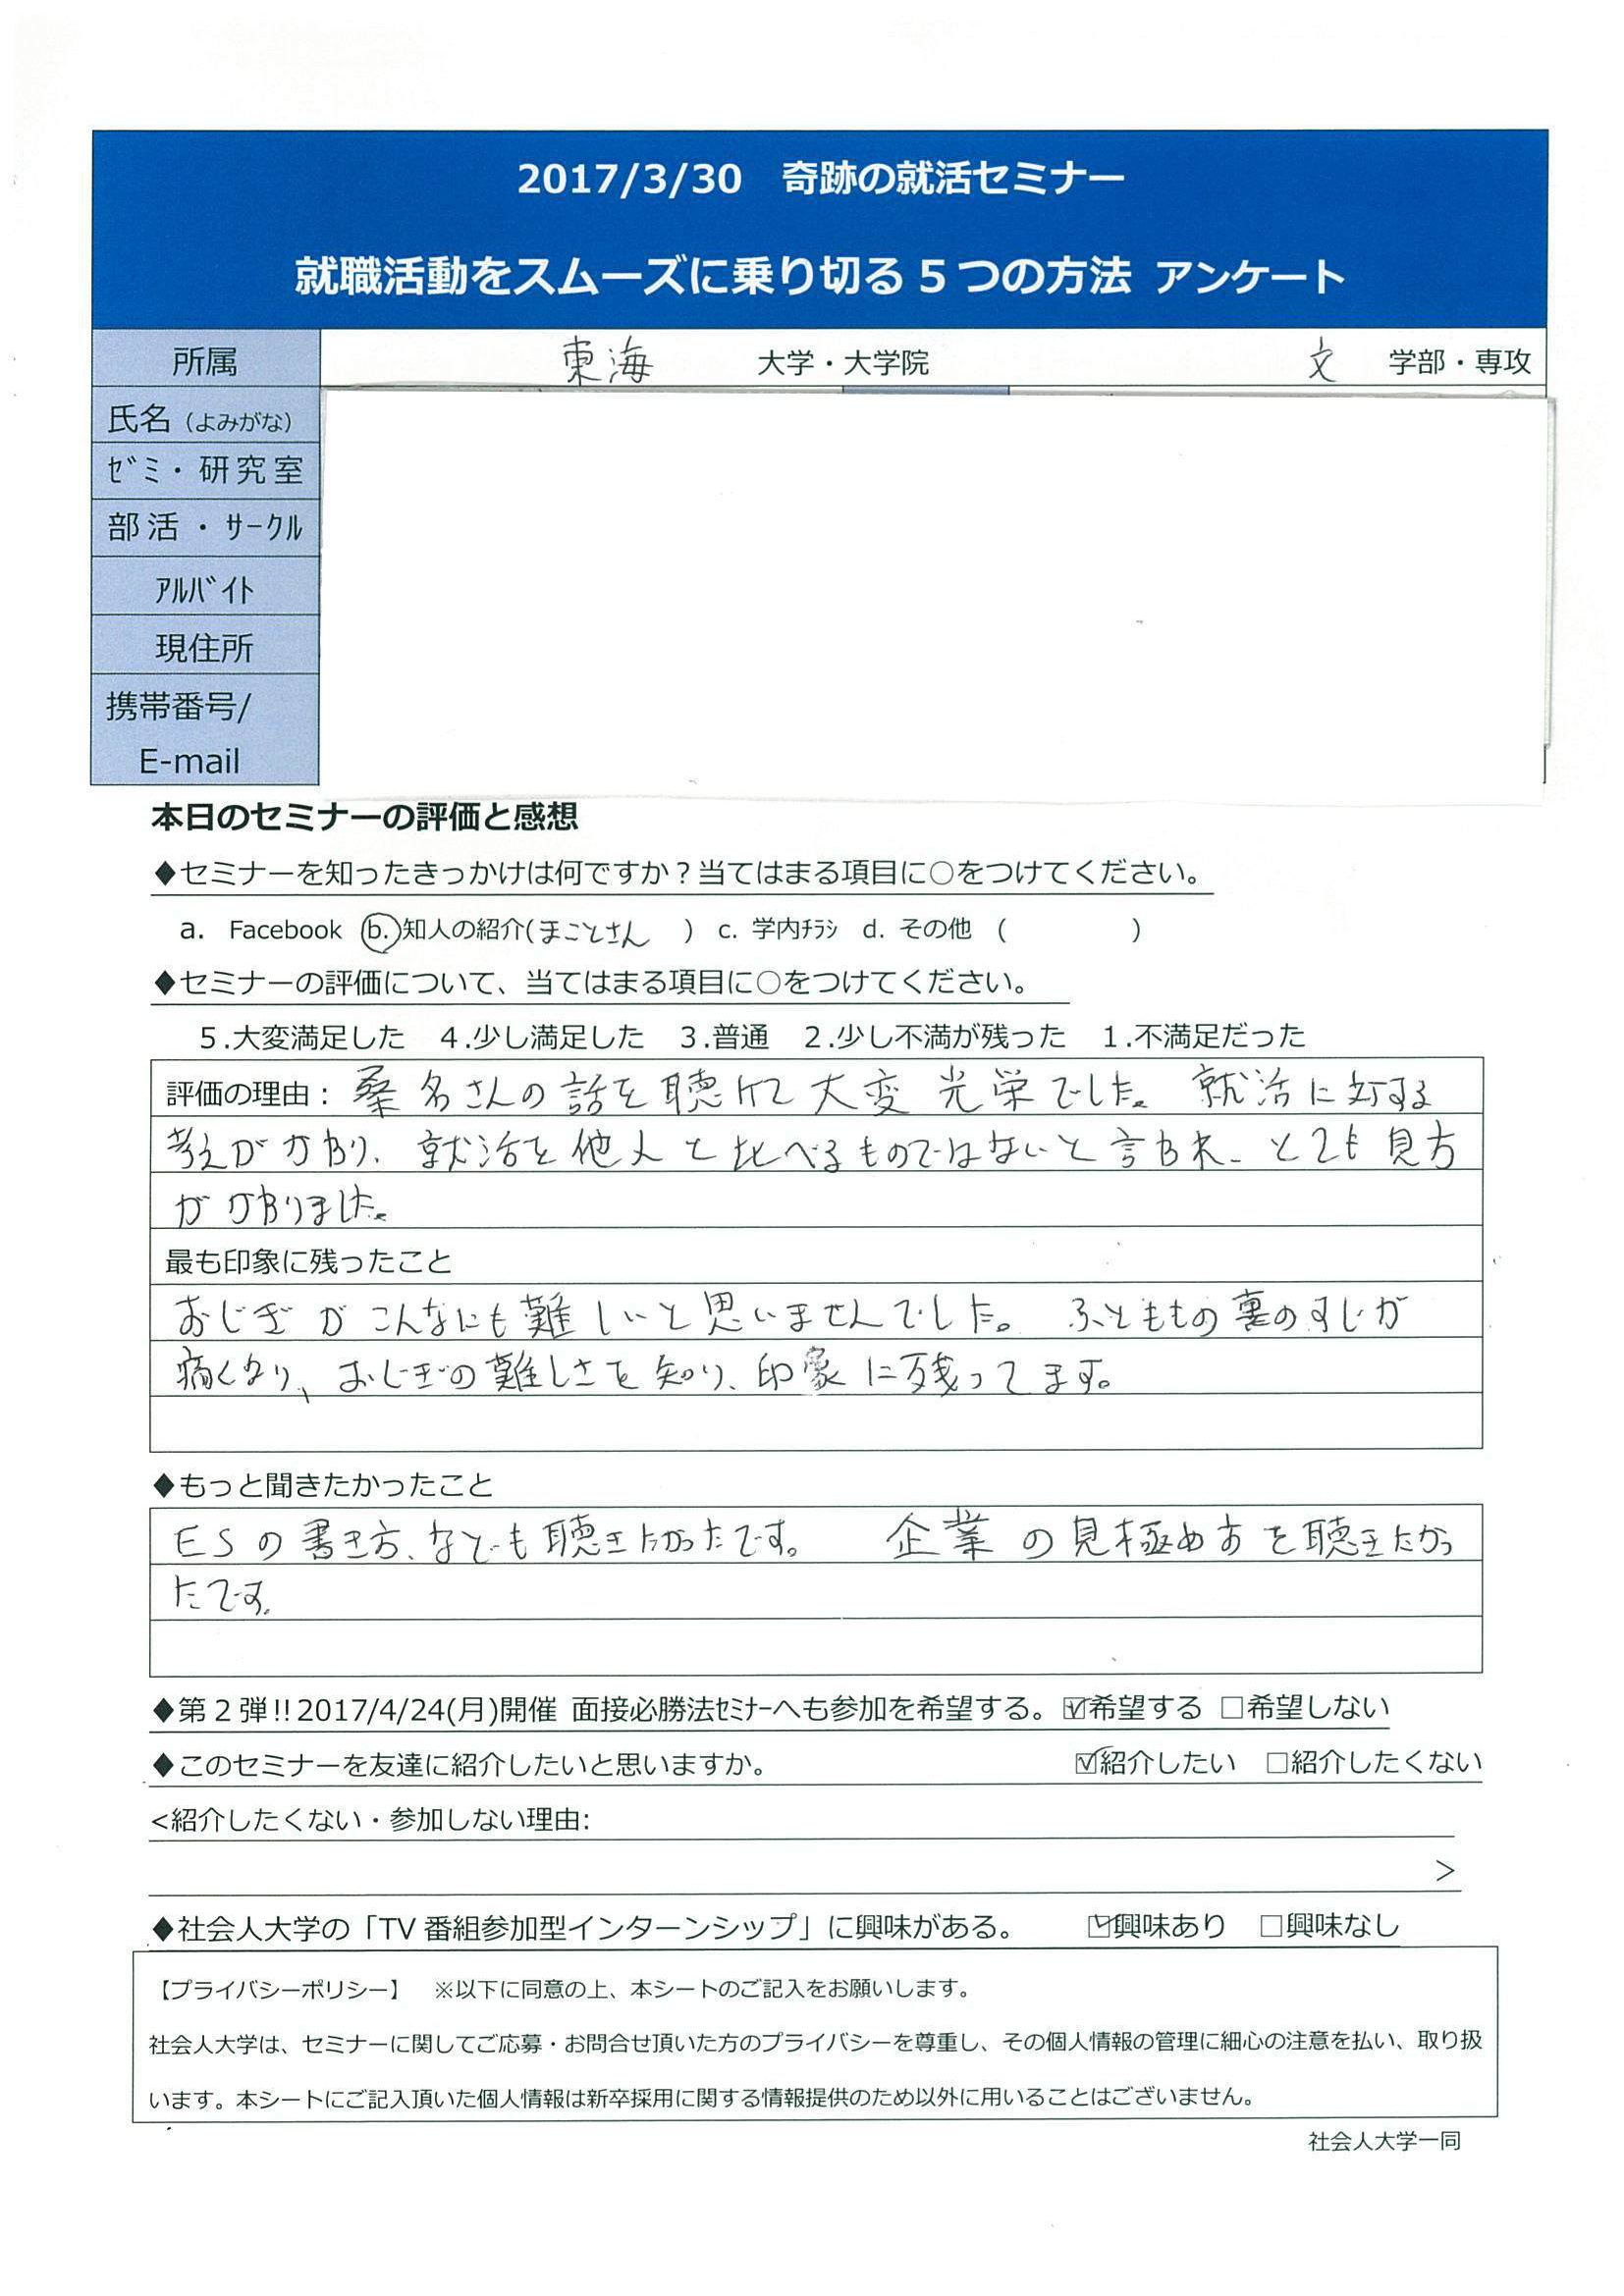 2017/3/30　奇跡の就活セミナー
就職活動をスムーズに乗り切る５つの方法 アンケート
所属　東海　大学・大学院　文　学部・専攻
氏名（よみがな）
ｾﾞﾐ・研究室
部活・ｻｰｸﾙ
ｱﾙﾊﾞｲﾄ
現住所
携帯番号/
E-mail
本日のセミナーの評価と感想
◆セミナーを知ったきっかけは何ですか？当てはまる項目に○をつけてください。
a. Facebook b.知人の紹介(まことさん　) c. 学内ﾁﾗｼ d. その他 (　　　　)
◆セミナーの評価について、当てはまる項目に○をつけてください。
５.大変満足した　４.少し満足した　３.普通　２.少し不満が残った　１.不満足だった
評価の理由：桑名さんの話を聴けて大変光栄でした。就活に対する
考えが変わり、就活を他人と比べるものではないと言われ、とても見方
が変わりました。
最も印象に残ったこと
おじぎがこんなにも難しいと思いませんでした。ふとももの裏のすじが
痛くなり、おじぎの難しさを知り、印象に残ってます。
◆もっと聞きたかったこと
ESの書き方、なども聴きたかったです。　企業の見極め方を聴きたかっ
たです。
◆第２弾!!2017/4/24(月)開催 面接必勝法ｾﾐﾅｰへも参加を希望する。☑希望する □希望しない
◆このセミナーを友達に紹介したいと思いますか。　☑紹介したい　□紹介したくない
<紹介したくない・参加しない理由:
>
◆社会人大学の「TV 番組参加型インターンシップ」に興味がある。　☑興味あり　□興味なし
【プライバシーポリシー】　※以下に同意の上、本シートのご記入をお願いします。
社会人大学は、セミナーに関してご応募・お問合せ頂いた方のプライバシーを尊重し、その個人情報の管理に細心の注意を払い、取り扱
います。本シートにご記入頂いた個人情報は新卒採用に関する情報提供のため以外に用いることはございません。
社会人大学一同